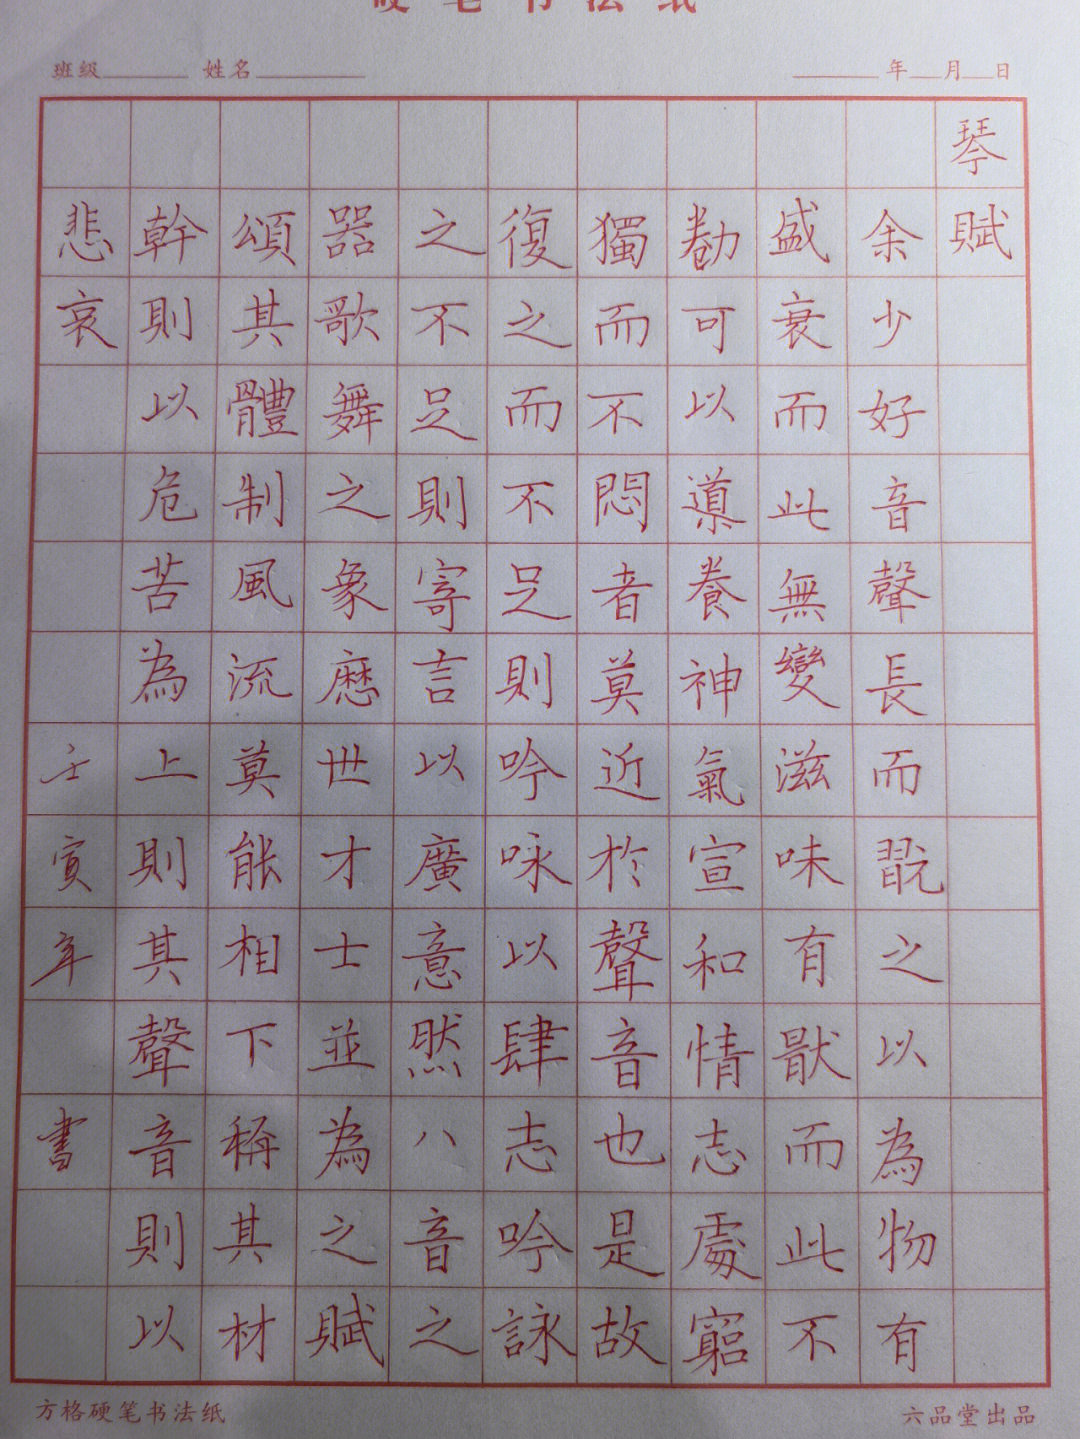 硬笔书法纸
班级 姓名 年 月 日
琴賦
余少好音聲長而翫之以為物有
盛衰而此無變滋味有猒而此不
勌可以導養神氣宣和情志處窮
獨而不悶者莫近於聲音也是故
復之而不足則吟咏以肆志吟詠
之不足則寄言以廣意然八音之
器歌舞之象歷世才士並為之賦
頌其體制風流莫能相下稱其材
幹則以危苦為上則其聲音則以
悲哀 壬寅年 書
方格硬笔书法纸 六品堂出品